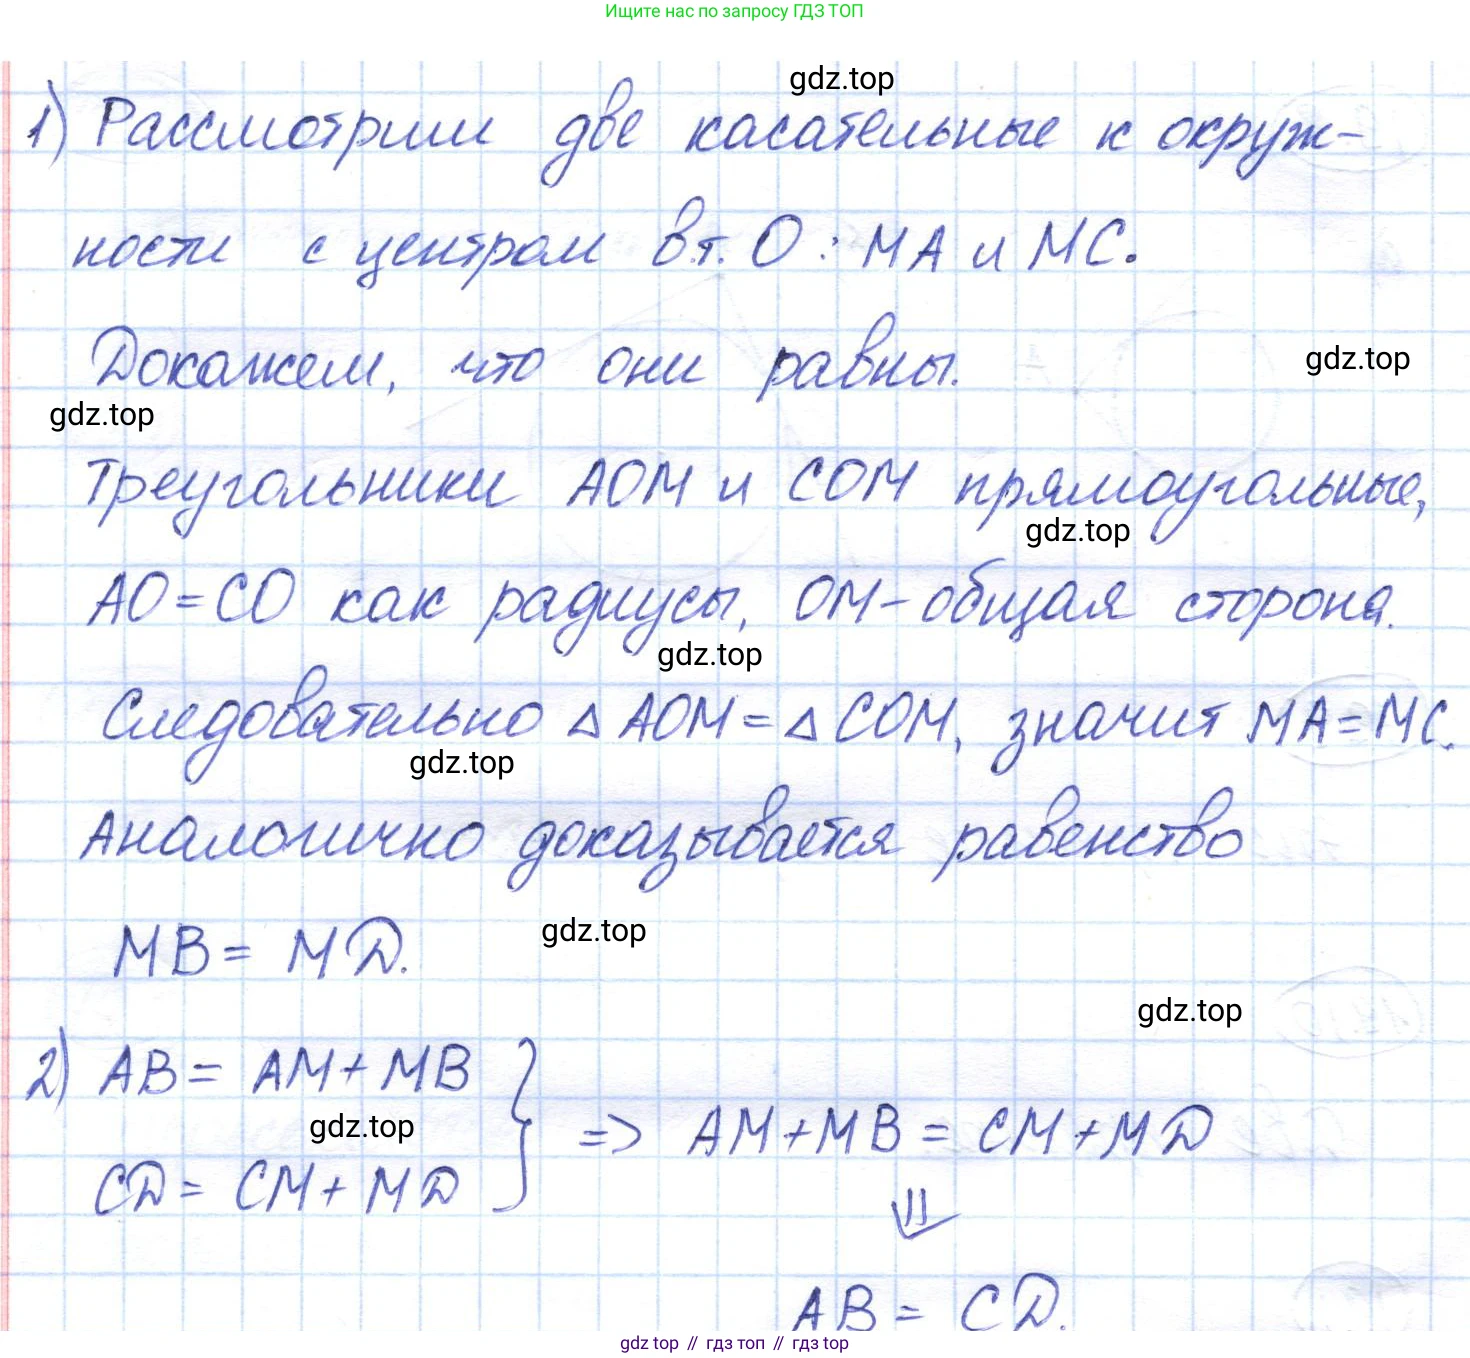 Ищите нас по запросу ГДЗ ТОП
gdz.top
1) Рассмотрим две касательные к окруж-
ности с центром в т. О: МА и МС.
Докажем, что они равны.
gdz.top
gdz.top
Треугольники АОМ и СОМ прямоугольные,
gdz.top
АО=СО как радиусы, ОМ-общая сторона.
gdz.top
Следовательно △ АОМ = △ СОМ, значит МА=МС.
gdz.top
Аналогично доказывается равенство
МВ = МD.
gdz.top
gdz.top
2) АВ = АМ+МВ
gdz.top
CD = CM + MD } => АМ+МВ = СМ+МD
⇓
АВ = CD.
gdz top // гдз топ // гдз top